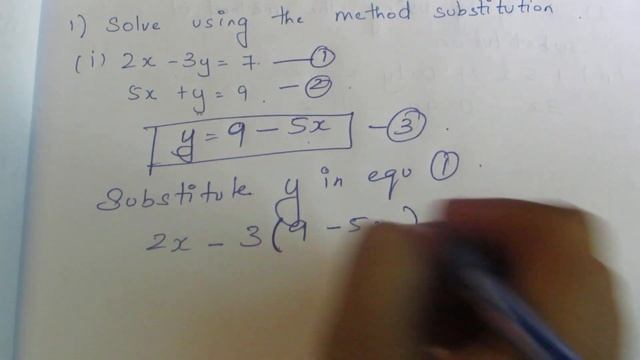 1) Solve using the method substitution.
(i) 2x - 3y = 7. —①
5x + y = 9. —②.
y = 9 - 5x —③.
Substitute y in equ ①.
2x - 3(9 - 5x)